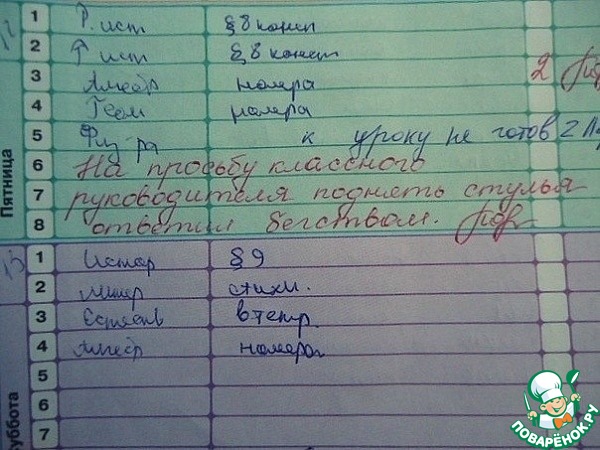 12
1 Р. ист § 8 конец
2 ↑ исп § 8 конст
3 Алгебр номера 2
4 Геом номера
5 Физ-ра к уроку не готов 2
6 На просьбу классного
7 руководителя поднять стулья
8 ответил бегством.
Пятница
13
1 Истор § 9
2 Литер стихи.
3 Естеств в тетр.
4 Алгебр номера
5
6
7
Суббота
ПОВАРЁНОК.РУ